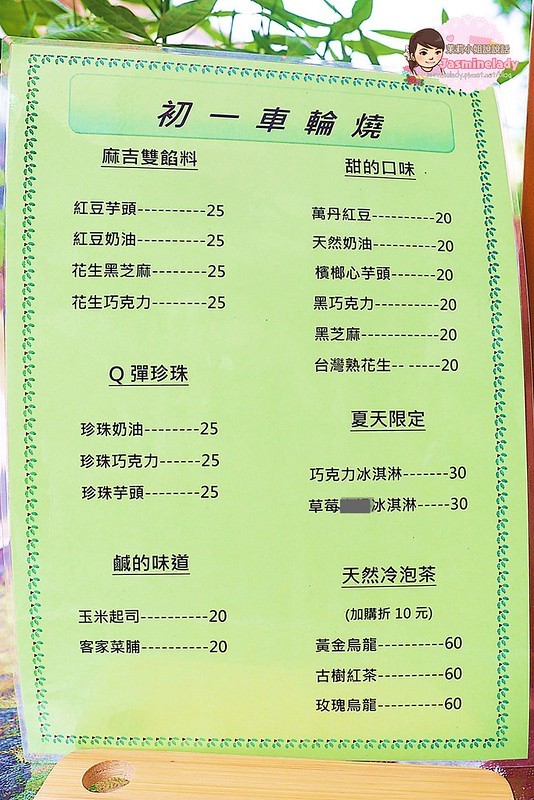 茉莉小姐說說話
Jasminelady
初一車輪燒
麻吉雙餡料
紅豆芋頭----------25
紅豆奶油----------25
花生黑芝麻--------25
花生巧克力--------25
Q 彈珍珠
珍珠奶油--------25
珍珠巧克力------25
珍珠芋頭--------25
鹹的味道
玉米起司----------20
客家菜脯----------20
甜的口味
萬丹紅豆----------20
天然奶油----------20
檳榔心芋頭-------20
黑巧克力----------20
黑芝麻------------20
台灣熟花生-- -----20
夏天限定
巧克力冰淇淋-------30
草莓 冰淇淋-----30
天然冷泡茶
(加購折 10 元)
黃金烏龍----------60
古樹紅茶----------60
玫瑰烏龍----------60